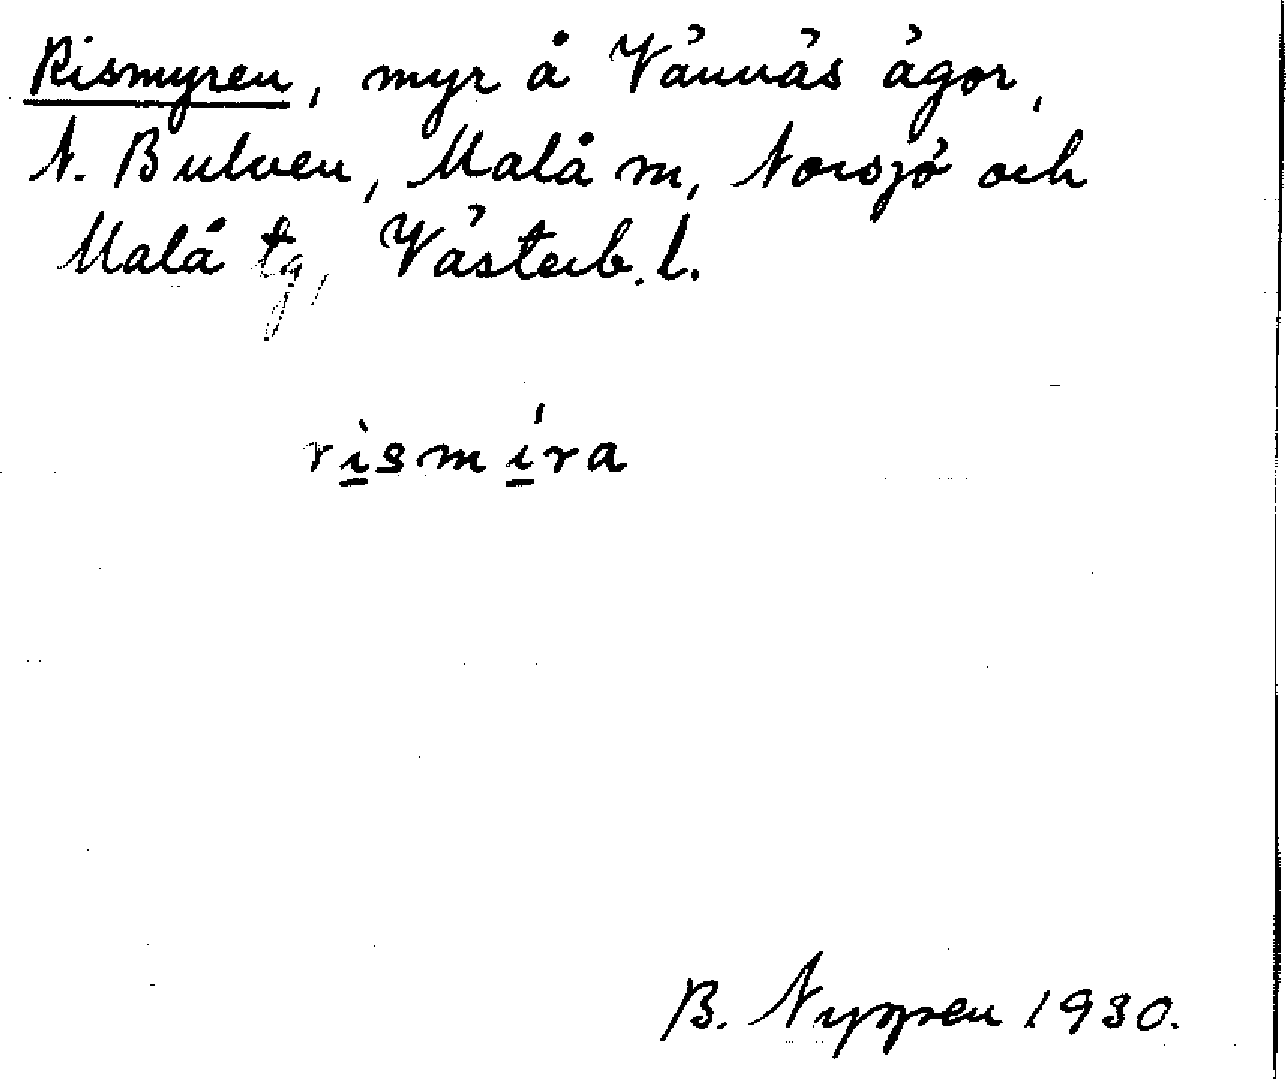 Rismyren, myr å Vännäs ägor,
N. Bulven, Malå m, Norsjö och
Malå tg, Västerb. l.
rìsmíra
B. Nyppen 1930.